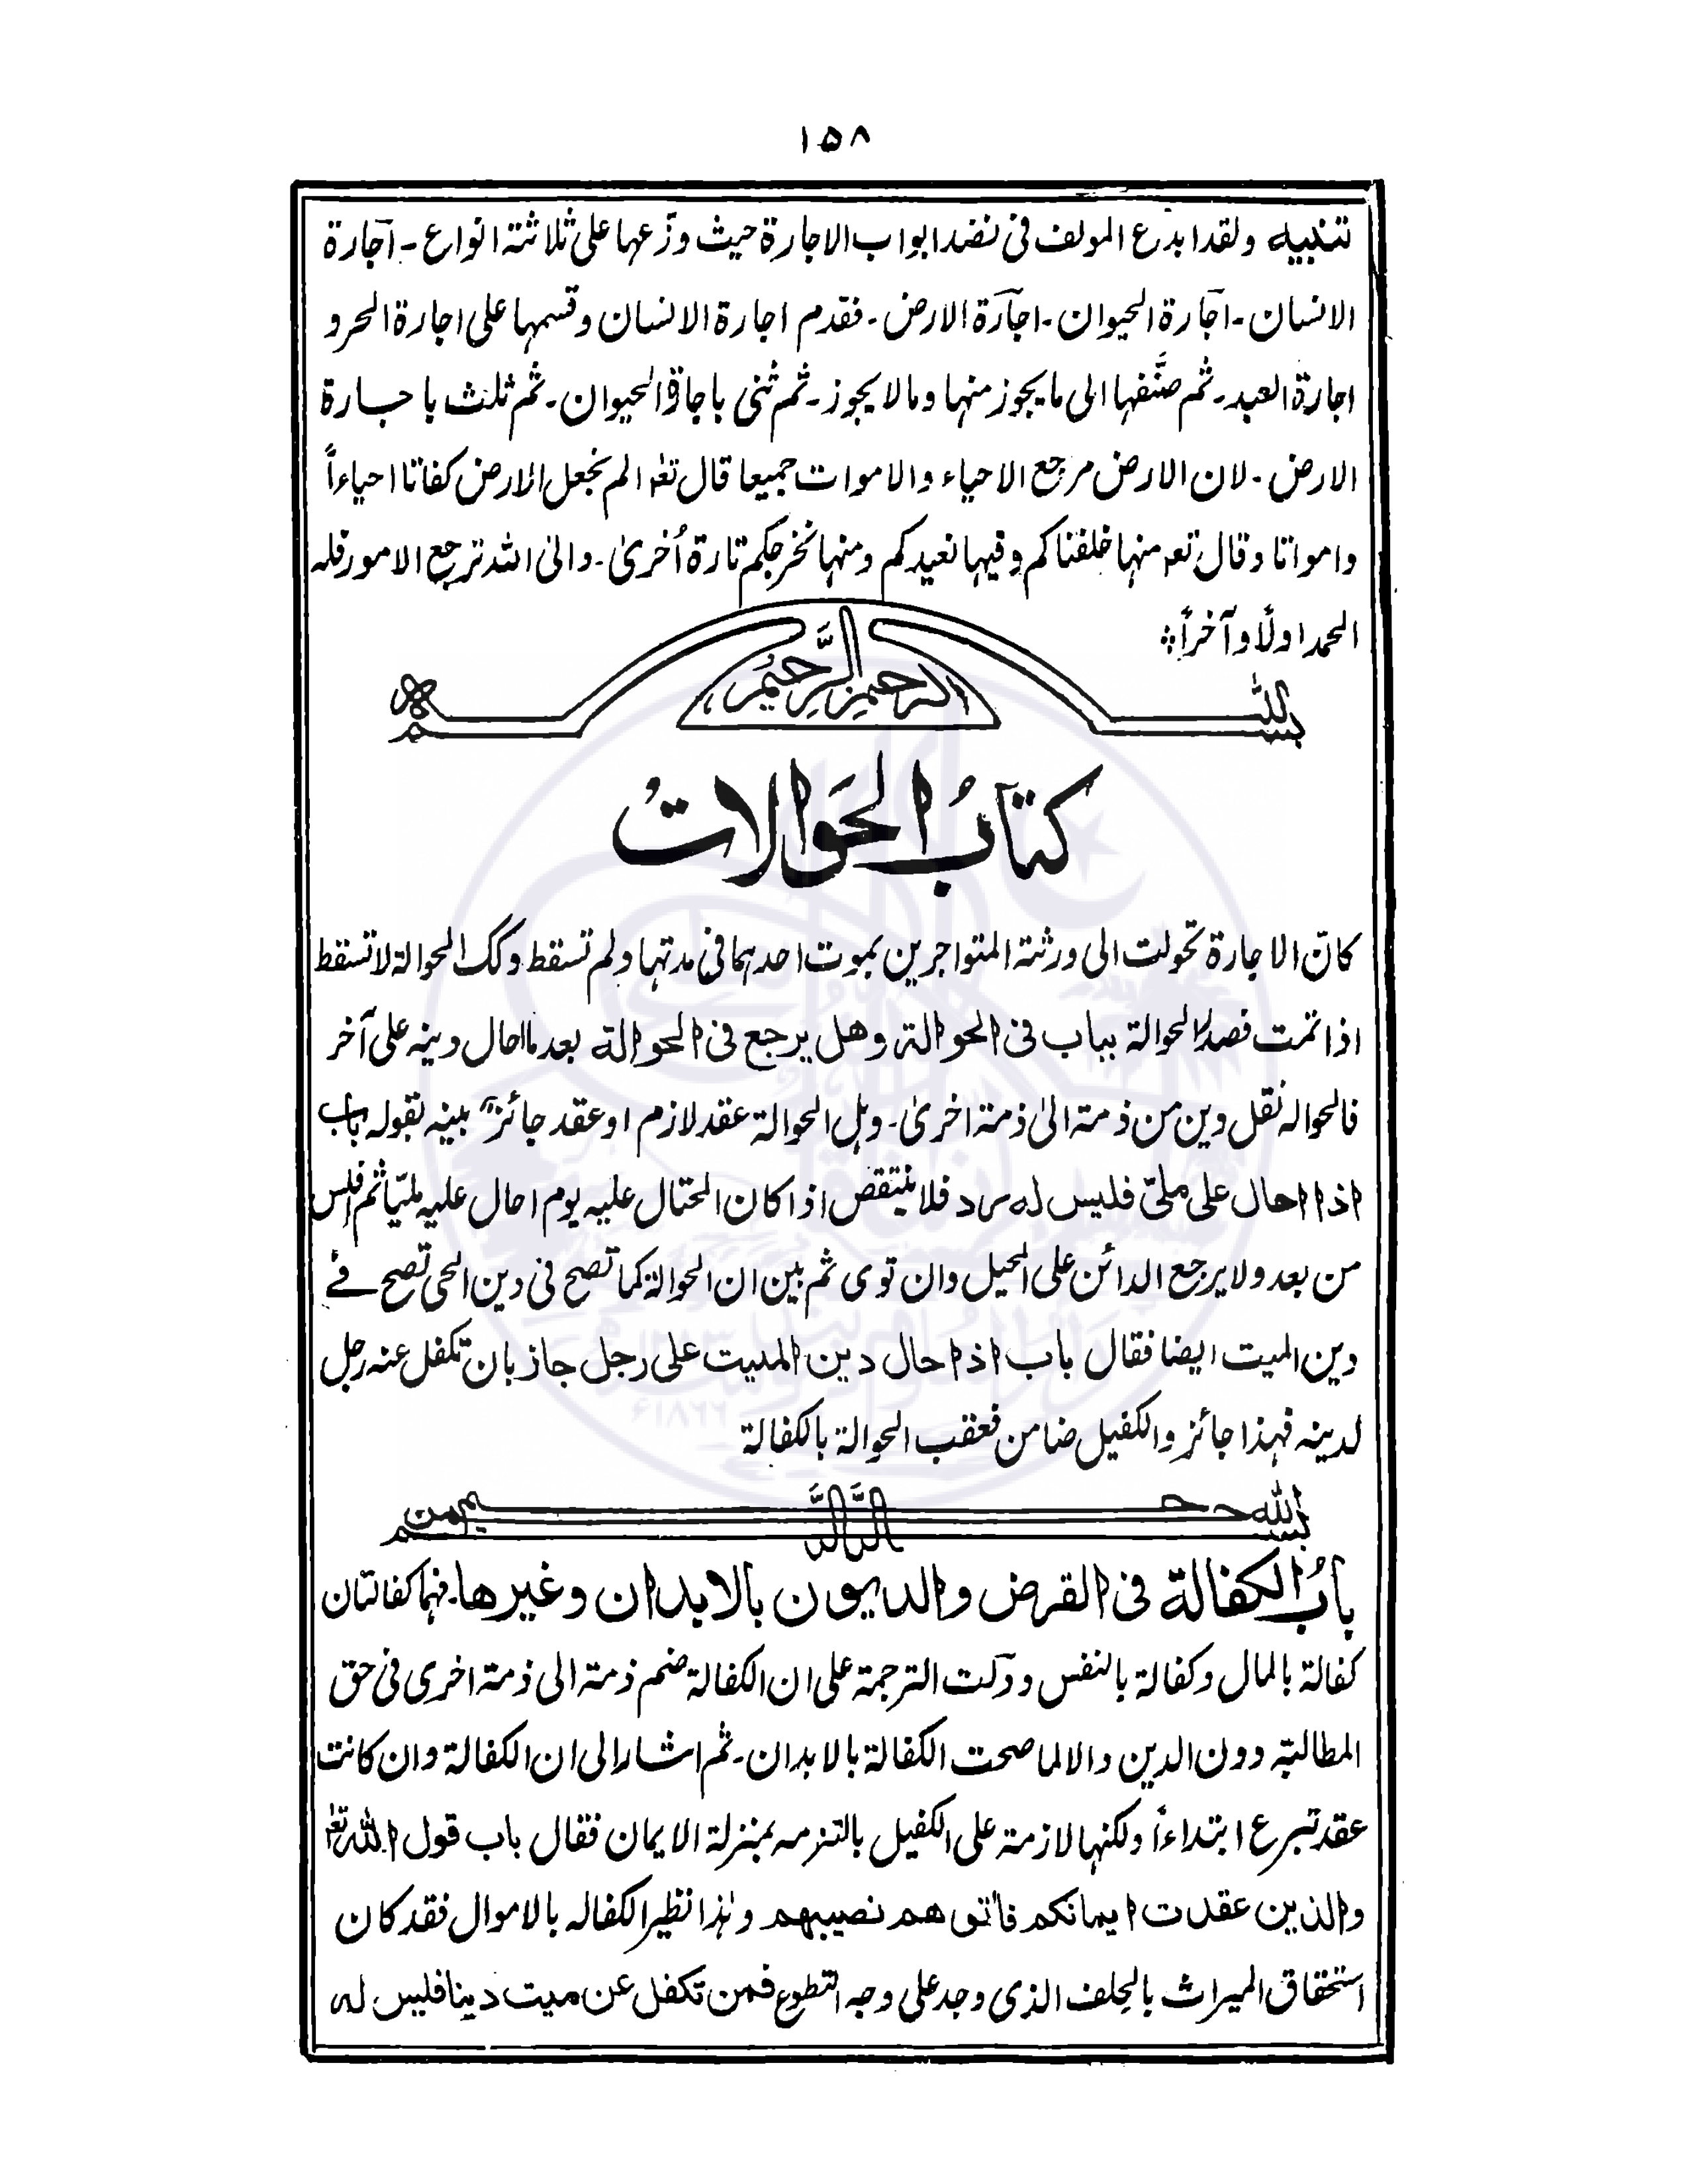 ١٥٨
تنبيه ولقد ابدع المولف فى نضد ابواب الاجارة حيث وزّعها على ثلاثة انواع - اجارة
الانسان - اجارة الحيوان - اجارة الارض - فقدم اجارة الانسان وقسمها على اجارة الحر و
اجارة العبد - ثم صنّفها الى ما يجوز منها وما لا يجوز - ثم ثنى باجارة الحيوان - ثم ثلث باجارة
الارض - لان الارض مرجع الاحياء والاموات جميعا قال تعٰ الم نجعل الارض كفاتا احياءاً
وامواتا وقال تعٰ منها خلقناكم وفيها نعيدكم ومنها نخرجكم تارة أُخرىٰ - والى الله ترجع الامور فله
الحمد اولًا وآخراً ؞
بسم الله الرحمن الرحيم
كتابُ الحَوالاتُ
كانّ الاجارة تحولت الى ورثة المتواجرين بموت احدهما فى مدتها ولم تسقط وكك الحوالة لا تسقط
اذا تمت فصدر الحوالة بباب فى الحوالة وهل يرجع فى الحوالة بعد ما احال دينه على آخر
فالحواله نقل دين من ذمة الىٰ ذمة اخرىٰ - وهل الحوالة عقد لازم او عقد جائز بينه بقوله باب
اذا احال على ملىّ فليس له رد فلا ينتقض اذا كان المحتال عليه يوم احال عليه مليّا ثم افلس
من بعد ولا يرجع الدائن على المحيل وان توى ثم بين ان الحوالة كما تصح فى دين الحى تصح فے
دين الميت ايضا فقال باب اذا حال دين الميت على رجل جاز بان تكفل عنه رجل
لدينه فهذا جائز والكفيل ضامن فعقب الحوالة بالكفالة
بسم الله الرحمن الرحيم
بابُ الكفالة فى القرض والديون بالابدان وغيرها - فهما كفالتان
كفالة بالمال وكفالة بالنفس ودلت الترجمة على ان الكفالة ضم ذمة الى ذمة اخرى فى حق
المطالبة دون الدين والا لما صحت الكفالة بالابدان - ثم اشار الى ان الكفالة وان كانت
عقد تبرع ابتداءاً ولكنها لازمة على الكفيل بالتزمه بمنزلة الايمان فقال باب قول الله تعٰ
والذين عقدت ايمانكم فاٰتوهم نصيبهم وهٰذا نظير الكفاله بالاموال فقد كان
استحقاق الميراث بالحلف الذى وجد على وجه التطوع فمن تكفل عن ميت دينا فليس له